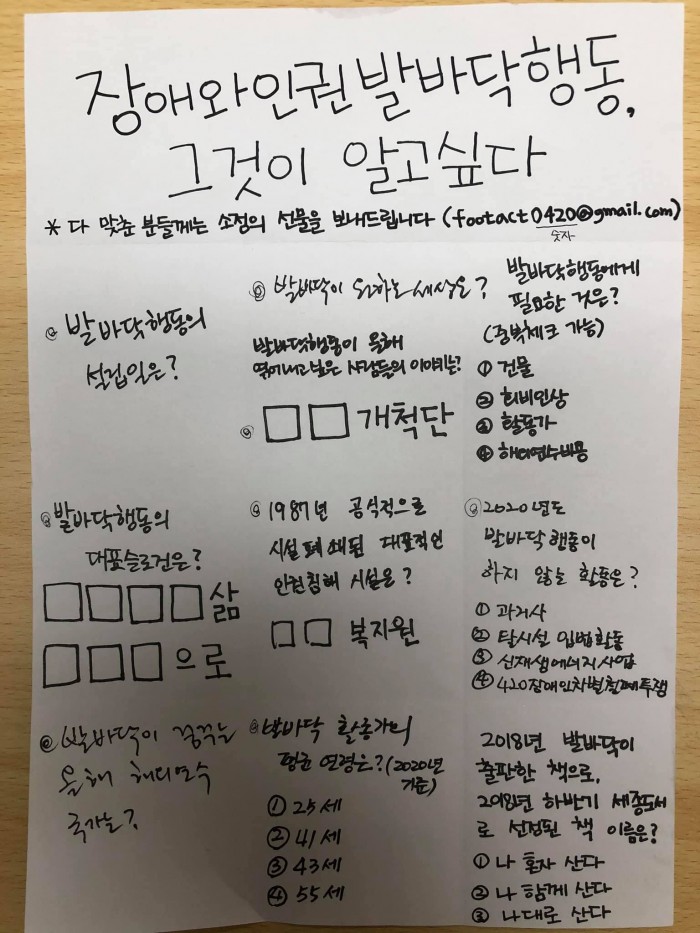 장애와인권발바닥행동,
그것이 알고싶다
* 다 맞춘 분들께는 소정의 선물을 보내드립니다 (footact0420@gmail.com)
숫자
발바닥행동의
설립일은?
발바닥이 원하는 세상은?
발바닥행동이 올해
엮어내고 낳은 사람들의 이야기는?
□□ 개척단
발바닥행동에게
필요한 것은?
(중복체크 가능)
① 건물
② 회비인상
③ 활동가
④ 해외연수비용
발바닥행동의
대표슬로건은?
□□□□ 삶
□□□ 으로
1987년 공식적으로
시설 폐쇄된 대표적인
인권침해 시설은?
□□ 복지원
2020년도
발바닥행동이
하지 않는 활동은?
① 과거사
② 탈시설 입법활동
③ 신재생에너지사업
④ 420장애인차별철폐투쟁
발바닥이 꿈꾸는
올해 해외연수
국가는?
발바닥 활동가의
평균 연령은? (2020년
기준)
① 25세
② 41세
③ 43세
④ 55세
2018년 발바닥이
출판한 책으로,
2018년 하반기 세종도서
로 선정된 책 이름은?
① 나 혼자 산다
② 나 함께 산다
③ 나대로 산다